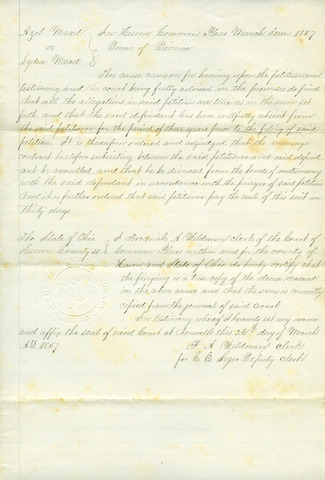 Azel Mead } In Huron Common Pleas March Term 1867
vs } Decree of Divorce
Lydia Mead }
This cause came on for hearing upon the petition and
testimony and the court being fully advised in the premises do find
that all the allegations in said petition are true as in the same set
forth, and that the said defendant has been willfully absent from
the said petitioner for the period of three years prior to the filing of said
petition. It is thereupon ordered and adjudged that the marriage
contract heretofore subsisting between the said petitioner and said defend-
ant be annulled, and that he be divorced from the bonds of matrimony
with the said defendant in accordance with the prayer of said petition
And it is further ordered that said petitioner pay the costs of this suit in
thirty days
The State of Ohio } I Fredrick A Wildman Clerk of the Court of
Huron County ss } Common Pleas within and for the county of
Huron and State of Ohio do hereby certify that
the foregoing is a true copy of the decree rendered
in the above cause and that the same is correctly
copied from the journal of said Court
In testimony whereof I hereunto set my name
and affix the seal of said Court at Norwalk this 26th day of March
A.D. 1867
F. A. Wildman Clerk
for Deputy Clerk